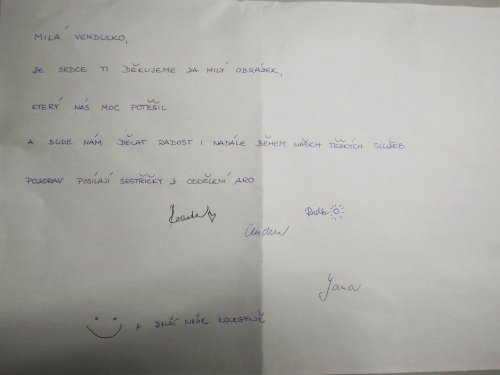 MILÁ VENDULKO,
ZE SRDCE TI DĚKUJEME ZA MILÝ OBRÁZEK,
KTERÝ NÁS MOC POTĚŠIL
A BUDE NÁM DĚLAT RADOST I NADÁLE BĚHEM NAŠICH TĚŽKÝCH SLUŽB
POZDRAV POSÍLAJÍ SESTŘIČKY Z ODDĚLENÍ ARO
Radka
Andrea
Jana
A DALŠÍ NAŠE KOLEGYNĚ